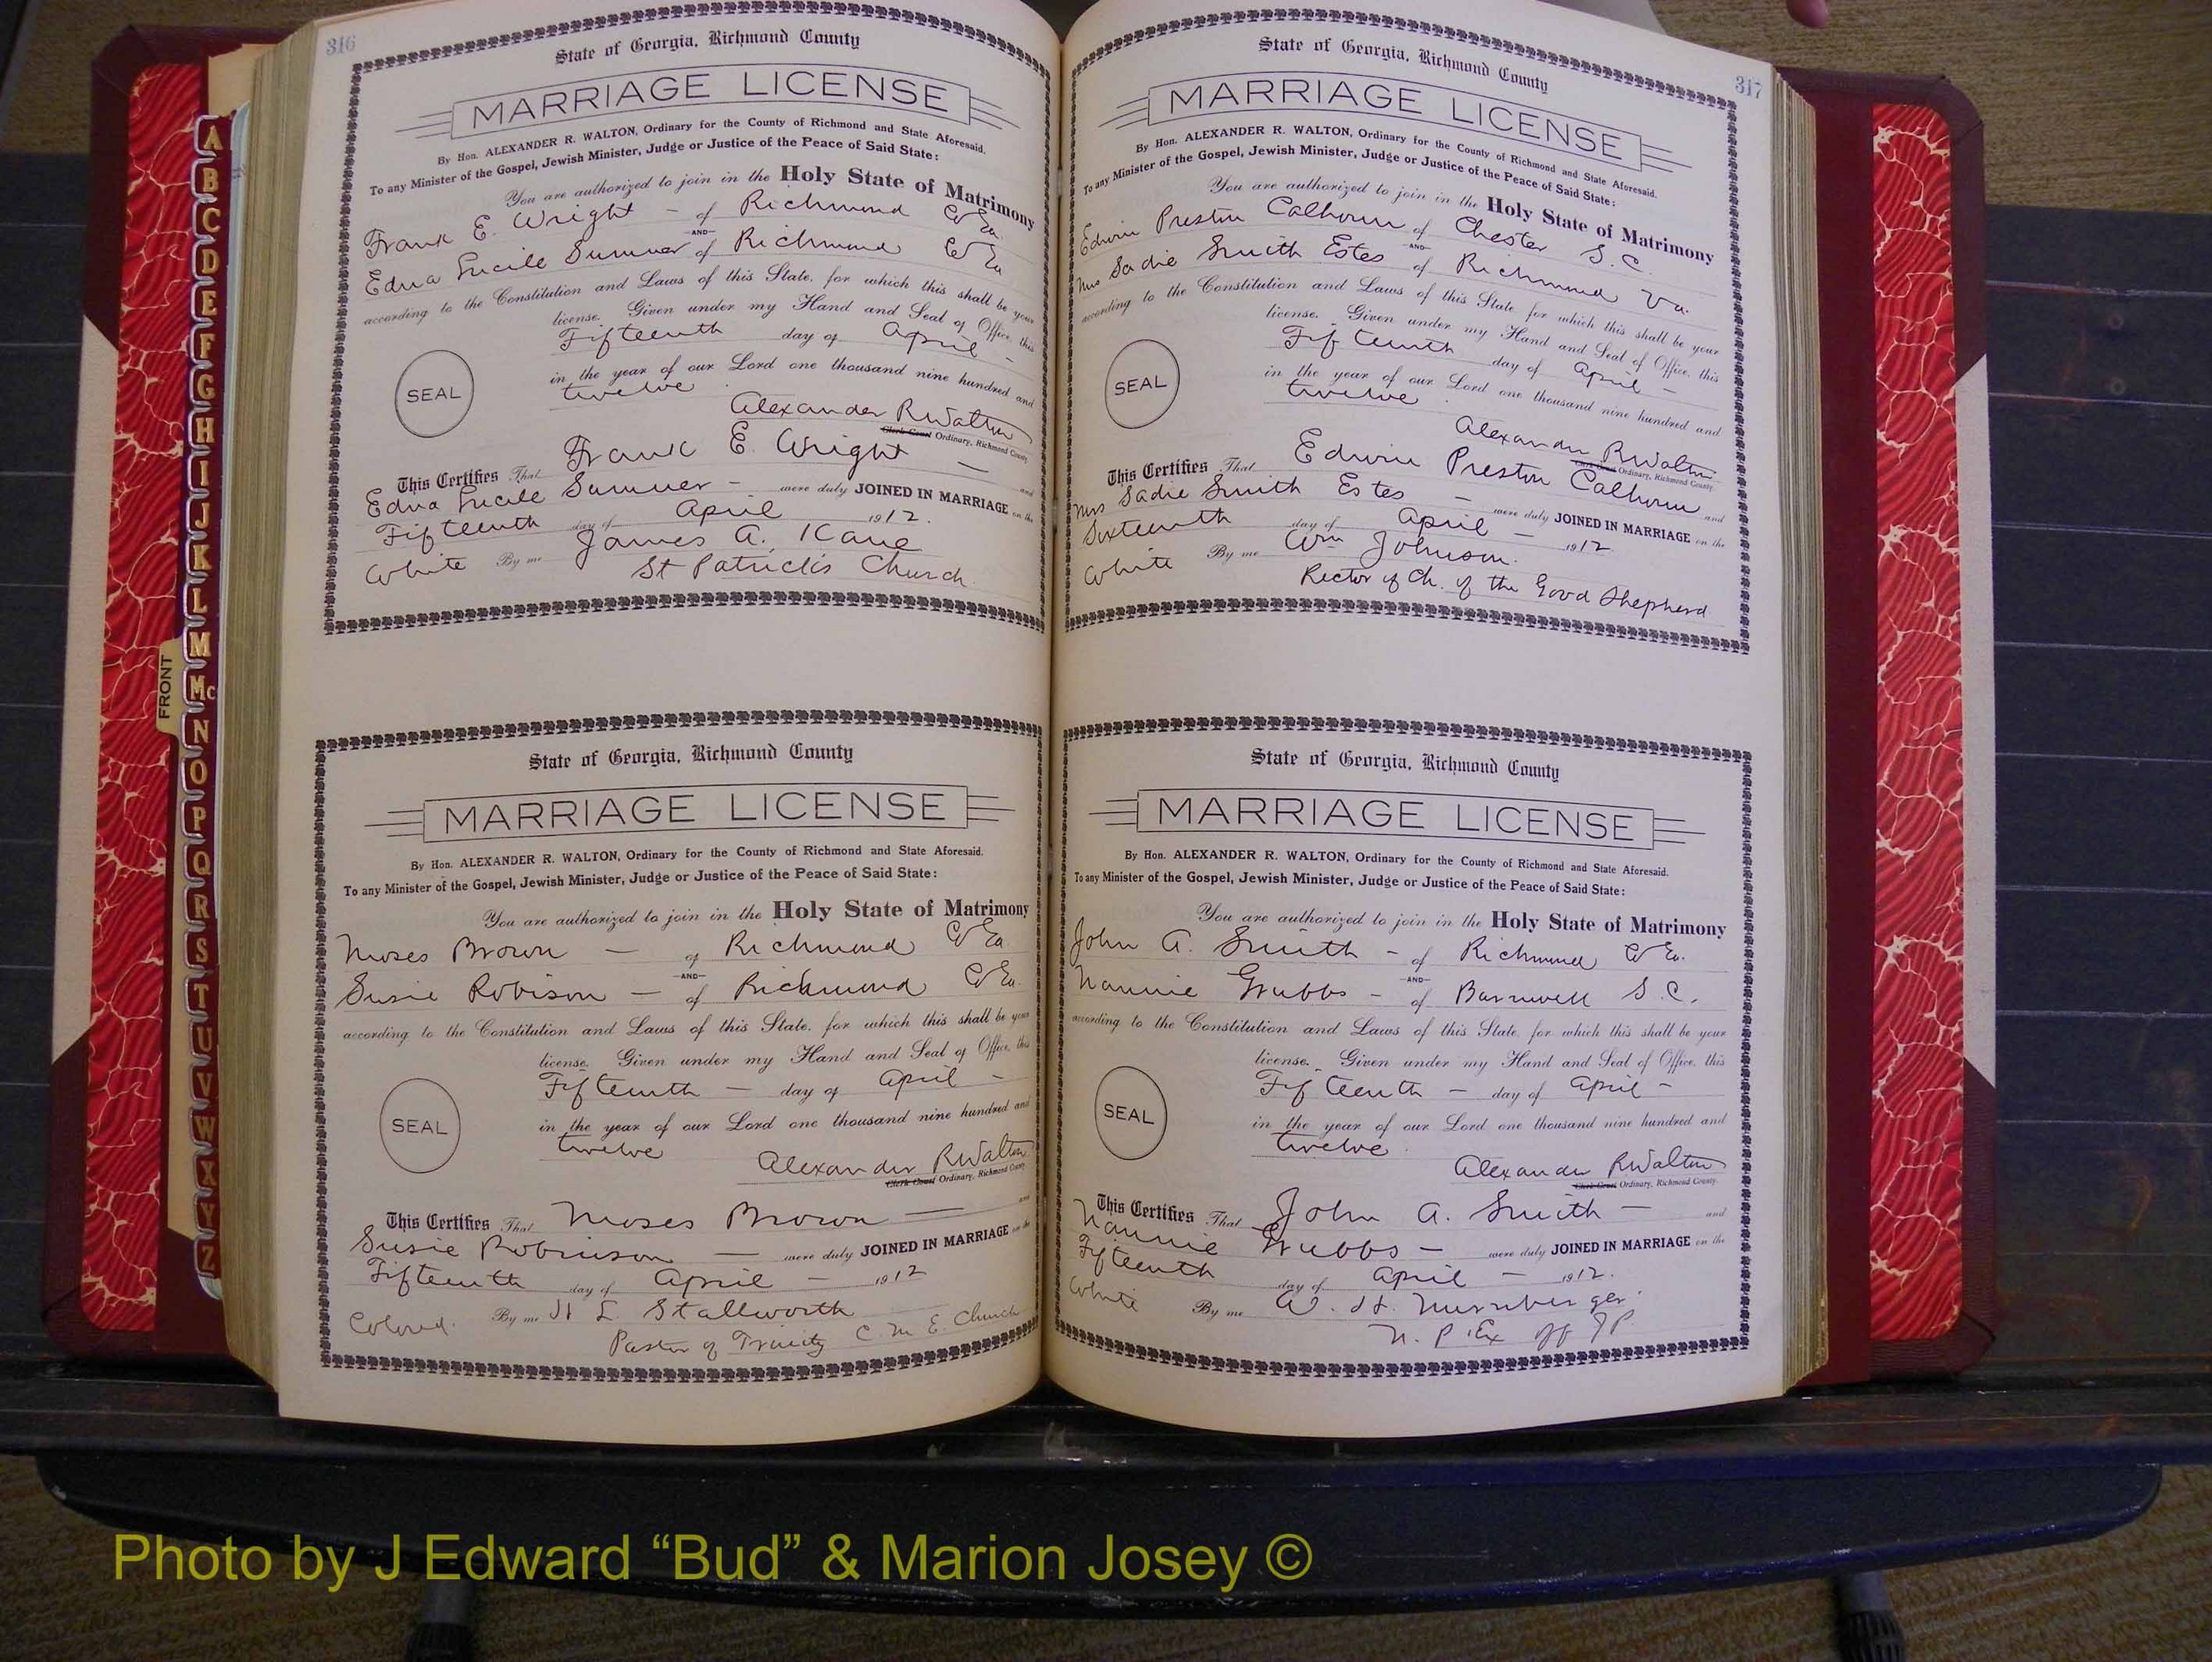 316
State of Georgia, Richmond County
MARRIAGE LICENSE
By Hon. ALEXANDER R. WALTON, Ordinary for the County of Richmond and State Aforesaid.
To any Minister of the Gospel, Jewish Minister, Judge or Justice of the Peace of Said State:
You are authorized to join in the Holy State of Matrimony
Frank E. Wright - of Richmond Co Ga.
AND
Edna Lucile Sumner of Richmond Co Ga
according to the Constitution and Laws of this State, for which this shall be your
license. Given under my Hand and Seal of Office, this
Fifteenth day of April -
in the year of our Lord one thousand nine hundred and
twelve
SEAL
Alexander R Walton
Clerk Court Ordinary, Richmond County.
This Certifies That Frank E. Wright - and
Edna Lucile Sumner - were duly JOINED IN MARRIAGE on the
Fifteenth day of April 1912.
White By me James A. Kane
St Patrick's Church
State of Georgia, Richmond County
MARRIAGE LICENSE
By Hon. ALEXANDER R. WALTON, Ordinary for the County of Richmond and State Aforesaid.
To any Minister of the Gospel, Jewish Minister, Judge or Justice of the Peace of Said State:
You are authorized to join in the Holy State of Matrimony
Moses Brown - of Richmond Co Ga
AND
Susie Robison - of Richmond Co Ga.
according to the Constitution and Laws of this State, for which this shall be your
license. Given under my Hand and Seal of Office, this
Fifteenth - day of April -
in the year of our Lord one thousand nine hundred and
twelve
SEAL
Alexander R Walton
Clerk Court Ordinary, Richmond County
This Certifies That Moses Brown - and
Susie Robinson - were duly JOINED IN MARRIAGE on the
Fifteenth day of April - 1912
Colored. By me H L Stallworth
Pastor of Trinity C. M. E. Church
317
State of Georgia, Richmond County
MARRIAGE LICENSE
By Hon. ALEXANDER R. WALTON, Ordinary for the County of Richmond and State Aforesaid.
To any Minister of the Gospel, Jewish Minister, Judge or Justice of the Peace of Said State:
You are authorized to join in the Holy State of Matrimony
Edwin Preston Calhoun of Chester S.C.
AND
Mrs Sadie Smith Estes of Richmond Va.
according to the Constitution and Laws of this State, for which this shall be your
license. Given under my Hand and Seal of Office, this
Fifteenth day of April -
in the year of our Lord one thousand nine hundred and
twelve.
SEAL
Alexander R Walton
Clerk Court Ordinary, Richmond County.
This Certifies That Edwin Preston Calhoun and
Mrs Sadie Smith Estes - were duly JOINED IN MARRIAGE on the
Sixteenth day of April - 1912.
White By me Wm Johnson.
Rector of Ch. of the Good Shepherd
State of Georgia, Richmond County
MARRIAGE LICENSE
By Hon. ALEXANDER R. WALTON, Ordinary for the County of Richmond and State Aforesaid.
To any Minister of the Gospel, Jewish Minister, Judge or Justice of the Peace of Said State:
You are authorized to join in the Holy State of Matrimony
John A. Smith - of Richmond Co Ga.
AND
Nannie Grubbs - of Barnwell S.C.
according to the Constitution and Laws of this State, for which this shall be your
license. Given under my Hand and Seal of Office, this
Fifteenth - day of April -
in the year of our Lord one thousand nine hundred and
twelve.
SEAL
Alexander R Walton
Clerk Court Ordinary, Richmond County.
This Certifies That John A. Smith - and
Nannie Grubbs - were duly JOINED IN MARRIAGE on the
Fifteenth day of April - 1912.
White By me W. H. Nurnberger
N. P. Ex Off J P
A
B
C
D
E
F
G
H
I
J
K
L
M
Mc
N
O
P
Q
R
S
T
U
V
W
X
Y
Z
FRONT
Photo by J Edward “Bud” & Marion Josey ©